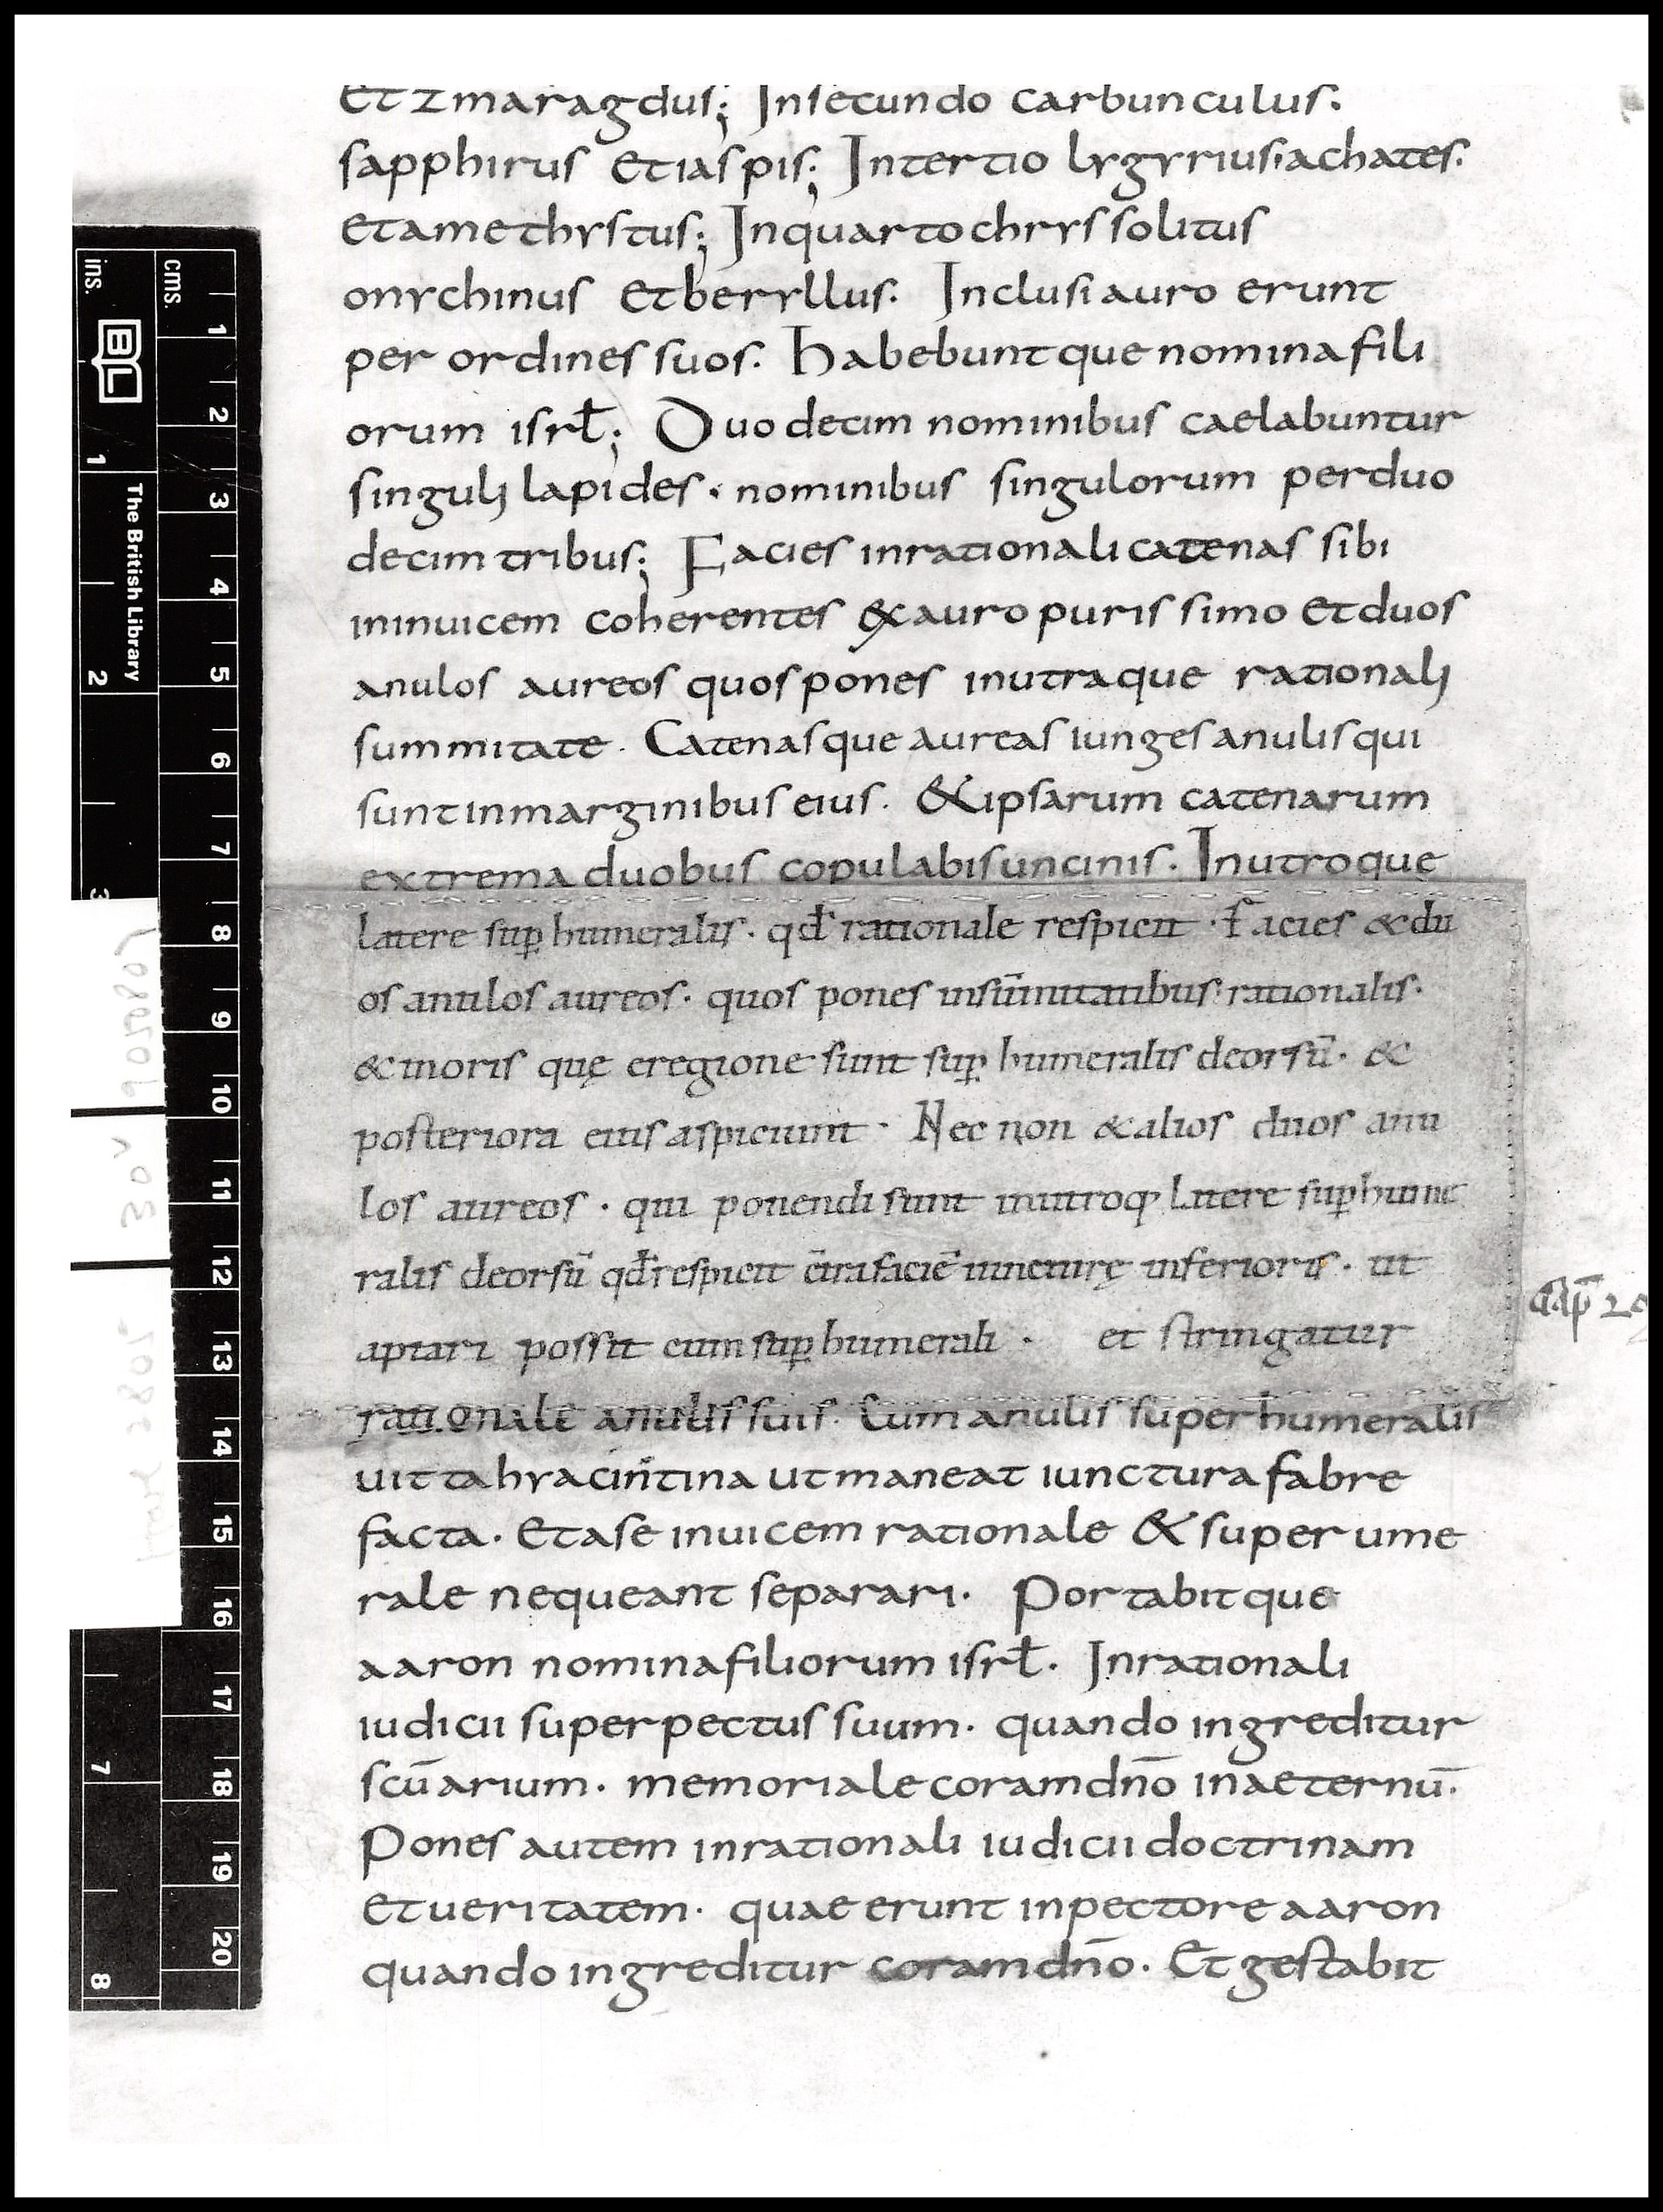 Et zmaragdus; In secundo carbunculus.
sapphirus et iaspis; In tertio lygyrius. achates.
et amethystus; In quarto chryssolitus
onychinus et beryllus. Inclusi auro erunt
per ordines suos. Habebuntque nomina fili
orum isrł; Duodecim nominibus caelabuntur
singuli lapides. nominibus singulorum per duo
decim tribus; Facies in rationali catenas sibi
in inuicem coherentes ex auro purissimo et duos
anulos aureos quos pones in utraque rationali
summitate. Catenasque aureas iunges anulis qui
sunt in marginibus eius. & ipsarum catenarum
extrema duobus copulabis uncinis. In utroque
latere sup̱ humeralis. qđ rationale respicit. Facies & du
os anulos aureos. quos pones in sūmitatibus rationalis.
& in oris quę e regione sunt sup̱ humeralis deorsū. &
posteriora eius aspiciunt. Nec non & alios duos anu
los aureos. qui ponendi sunt in utroq; latere sup̱ hume
ralis deorsū qđ respicit c̄tra faciē iuncturę inferioris. ut
aptari possit cum sup̱ humerali. et stringatur
rationale anulis suis. Cum anulis super humeralis
uitta hyacintina ut maneat iunctura fabre
facta. Et a se inuicem rationale & super ume
rale nequeant separari. Portabitque
aaron nomina filiorum isrł. In rationali
iudicii super pectus suum. quando ingreditur
scūarium. memoriale coram dn̄o in aeternū.
Pones autem in rationali iudicii doctrinam
et ueritatem. quae erunt in pectore aaron
quando ingreditur coram dn̄o. Et gestabit
Cap̄
ins.
cms.
BL
The British Library
1
2
3
7
8
1
2
3
4
5
6
7
8
9
10
11
12
13
14
15
16
17
18
19
20
30v